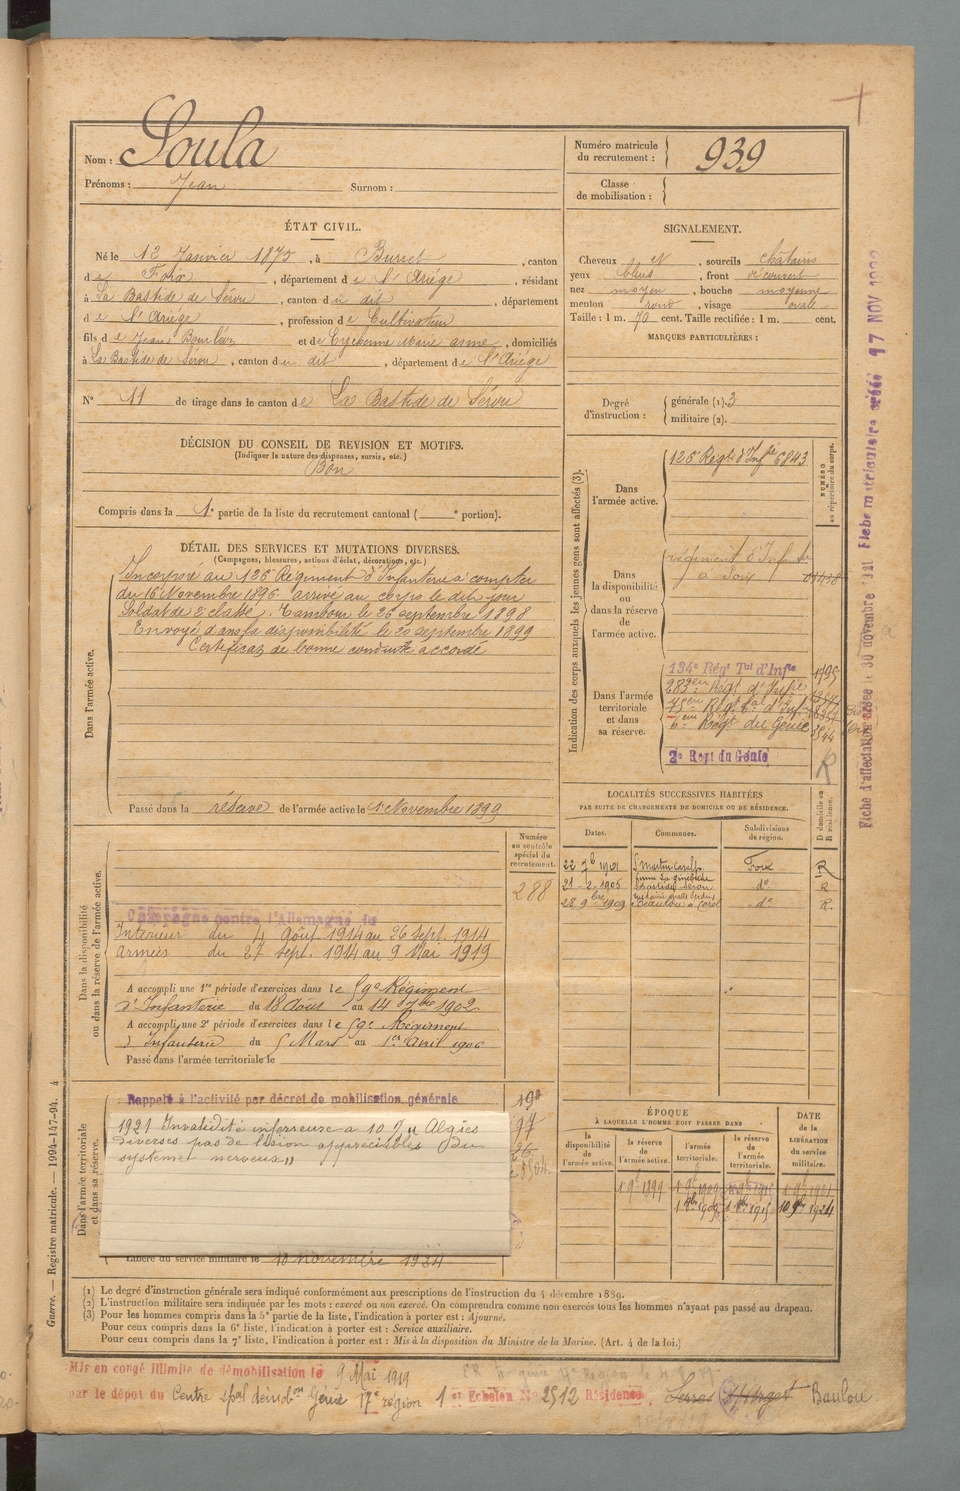 Nom : Soula
Prénoms : Jean Surnom :
Numéro matricule du recrutement : 939
Classe de mobilisation :
ÉTAT CIVIL.
Né le 12 Janvier 1875, à Burret, canton
de Foix, département de l'Ariége, résidant
à La Bastide de Sérou, canton du dit, département
de l'Ariége, profession de Cultivateur
fils de Jean et de Marie, domiciliés
à La Bastide de Sérou, canton du dit, département de l'Ariége
N° 11 de tirage dans le canton de La Bastide de Sérou
SIGNALEMENT.
Cheveux et, sourcils châtains
yeux bleus, front découvert
nez moyen, bouche moyenne
menton rond, visage ovale
Taille : 1 m. 70 cent. Taille rectifiée : 1 m. cent.
MARQUES PARTICULIÈRES :
Degré d'instruction : générale (1). 3
militaire (2).
DÉCISION DU CONSEIL DE REVISION ET MOTIFS.
(Indiquer la nature des dispenses, sursis, etc.)
Bon
Compris dans la 1e partie de la liste du recrutement cantonal ( e portion).
DÉTAIL DES SERVICES ET MUTATIONS DIVERSES.
(Campagnes, blessures, actions d'éclat, décorations, etc.)
Dans l'armée active.
Incorporé au 126e Régiment d'Infanterie à compter
du 16 Novembre 1896 arrivé au corps le dit jour
Soldat de 2e classe. Tambour le 26 septembre 1898
Envoyé dans la disponibilité le 20 septembre 1899
Certificat de bonne conduite accordé
Passé dans la réserve de l'armée active le 1er Novembre 1899
Indication des corps auxquels les jeunes gens sont affectés (3).
NUMÉRO au répertoire du corps.
Dans l'armée active.
126e Régt d'Infie 6843
Dans la disponibilité ou dans la réserve de l'armée active.
régiment d'Infanterie
à Foix
Dans l'armée territoriale et dans sa réserve.
134e Régt Tal d'Infie
Régt d'Infie
6e Régt du Génie
2e Regt du Génie
R
LOCALITÉS SUCCESSIVES HABITÉES
PAR SUITE DE CHANGEMENTS DE DOMICILE OU DE RÉSIDENCE.
Dates. Communes. Subdivisions de région. D domicile ou R résidence.
22 7b 1901 St Martin Caralp Foix R
21 2 1906 Labastide Sérou do R
28 9bre 1909 Baulou do R.
Numéro au contrôle spécial du recrutement.
288
Dans la disponibilité ou dans la réserve de l'armée active.
Campagne contre l'Allemagne du
Intérieur du 4 Août 1914 au 26 Sept. 1914
Armées du 27 sept. 1914 au 9 Mai 1919
A accompli une 1re période d'exercices dans le 59e Régiment
d'Infanterie du 18 Août au 14 7bre 1902
A accompli une 2e période d'exercices dans le 59e Régiment
d'Infanterie du 5 Mars au 1er Avril 1906
Passé dans l'armée territoriale le
Dans l'armée territoriale et dans sa réserve.
Rappelé à l'activité par décret de mobilisation générale
1921 Invalidité inférieure à 10 % "Algies
diverses pas de lésion appréciables du
système nerveux"
Libéré du service militaire le 10 Novembre 1924
ÉPOQUE
À LAQUELLE L'HOMME DOIT PASSER DANS
la disponibilité de l'armée active. la réserve de l'armée active. l'armée territoriale. la réserve de l'armée territoriale.
DATE de la LIBÉRATION du service militaire.
1 9b 1899 1 9b 1909 1 9b 1915 1 9b 1921
1 9bre 1909 1 9bre 1915 10 9bre 1924
(1) Le degré d'instruction générale sera indiqué conformément aux prescriptions de l'instruction du 4 décembre 1889.
(2) L'instruction militaire sera indiquée par les mots : exercé ou non exercé. On comprendra comme non exercés tous les hommes n'ayant pas passé au drapeau.
(3) Pour les hommes compris dans la 5e partie de la liste, l'indication à porter est : Ajourné.
Pour ceux compris dans la 6e liste, l'indication à porter est : Service auxiliaire.
Pour ceux compris dans la 7e liste, l'indication à porter est : Mis à la disposition du Ministre de la Marine. (Art. 4 de la loi.)
Guerre. — Registre matricule. — 1094-147-94. 4
Mis en congé illimité de démobilisation le 9 Mai 1919
par le dépot du Centre spal démobon Génie 17e région 1er Echelon No 2512 Résidence Baulou
Fiche d'affectation créée le 30 novembre Fiche matriculaire créée 17 NOV